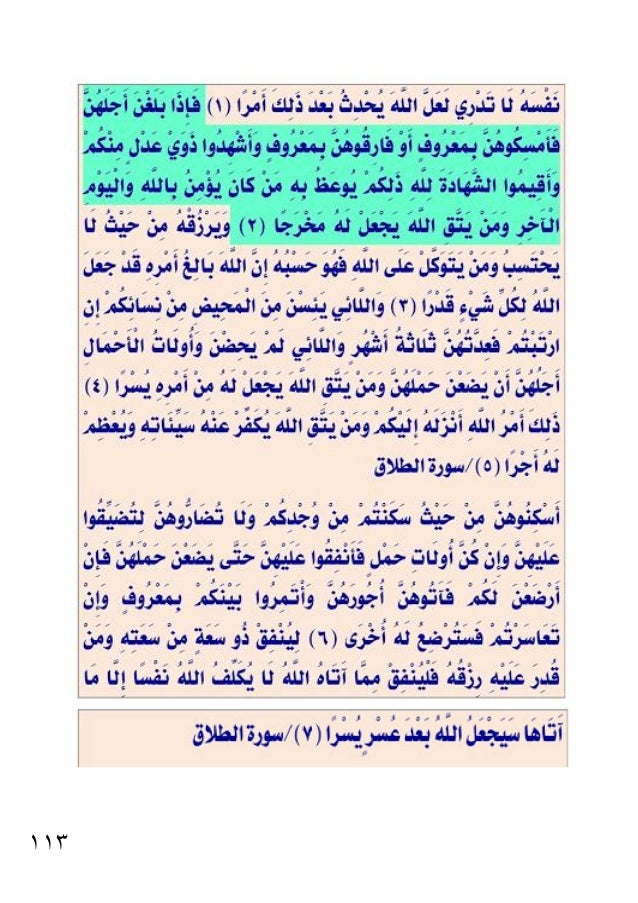 نَفْسَهُ لَا تَدْرِي لَعَلَّ اللَّهَ يُحْدِثُ بَعْدَ ذَلِكَ أَمْرًا (١) فَإِذَا بَلَغْنَ أَجَلَهُنَّ
فَأَمْسِكُوهُنَّ بِمَعْرُوفٍ أَوْ فَارِقُوهُنَّ بِمَعْرُوفٍ وَأَشْهِدُوا ذَوَيْ عَدْلٍ مِنْكُمْ
وَأَقِيمُوا الشَّهَادَةَ لِلَّهِ ذَلِكُمْ يُوعَظُ بِهِ مَنْ كَانَ يُؤْمِنُ بِاللَّهِ وَالْيَوْمِ
الْآخِرِ وَمَنْ يَتَّقِ اللَّهَ يَجْعَلْ لَهُ مَخْرَجًا (٢) وَيَرْزُقْهُ مِنْ حَيْثُ لَا
يَحْتَسِبُ وَمَنْ يَتَوَكَّلْ عَلَى اللَّهِ فَهُوَ حَسْبُهُ إِنَّ اللَّهَ بَالِغُ أَمْرِهِ قَدْ جَعَلَ
اللَّهُ لِكُلِّ شَيْءٍ قَدْرًا (٣) وَاللَّائِي يَئِسْنَ مِنَ الْمَحِيضِ مِنْ نِسَائِكُمْ إِنِ
ارْتَبْتُمْ فَعِدَّتُهُنَّ ثَلَاثَةُ أَشْهُرٍ وَاللَّائِي لَمْ يَحِضْنَ وَأُولَاتُ الْأَحْمَالِ
أَجَلُهُنَّ أَنْ يَضَعْنَ حَمْلَهُنَّ وَمَنْ يَتَّقِ اللَّهَ يَجْعَلْ لَهُ مِنْ أَمْرِهِ يُسْرًا (٤)
ذَلِكَ أَمْرُ اللَّهِ أَنْزَلَهُ إِلَيْكُمْ وَمَنْ يَتَّقِ اللَّهَ يُكَفِّرْ عَنْهُ سَيِّئَاتِهِ وَيُعْظِمْ
لَهُ أَجْرًا (٥)/سورة الطلاق
أَسْكِنُوهُنَّ مِنْ حَيْثُ سَكَنْتُمْ مِنْ وُجْدِكُمْ وَلَا تُضَارُّوهُنَّ لِتُضَيِّقُوا
عَلَيْهِنَّ وَإِنْ كُنَّ أُولَاتِ حَمْلٍ فَأَنْفِقُوا عَلَيْهِنَّ حَتَّى يَضَعْنَ حَمْلَهُنَّ فَإِنْ
أَرْضَعْنَ لَكُمْ فَآتُوهُنَّ أُجُورَهُنَّ وَأْتَمِرُوا بَيْنَكُمْ بِمَعْرُوفٍ وَإِنْ
تَعَاسَرْتُمْ فَسَتُرْضِعُ لَهُ أُخْرَى (٦) لِيُنْفِقْ ذُو سَعَةٍ مِنْ سَعَتِهِ وَمَنْ
قُدِرَ عَلَيْهِ رِزْقُهُ فَلْيُنْفِقْ مِمَّا آتَاهُ اللَّهُ لَا يُكَلِّفُ اللَّهُ نَفْسًا إِلَّا مَا
آَتَاهَا سَيَجْعَلُ اللَّهُ بَعْدَ عُسْرٍ يُسْرًا (٧)/سورة الطلاق
١١٣